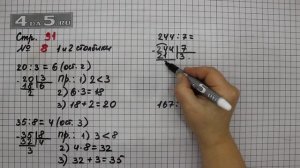 4 ДА 5.RU
Стр. 91
№ 8 1 и 2 столбики
20:3 = 6 (ост. 2)
-20 | 3
18 | 6
2
Пр.: 1) 2 < 3
2) 6·3 = 18
3) 18+2 = 20
35:8 = 4 (ост. 3)
-35 | 8
32 | 4
3
Пр.: 1) 3 < 8
2) 4·8 = 32
3) 32+3 = 35
244:7 =
-244 | 7
21 | 3
167: